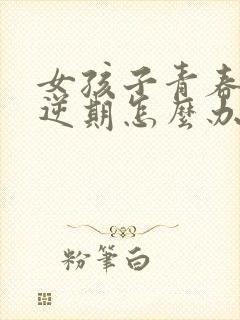 女孩子青春
逆期怎麼办
粉筆白